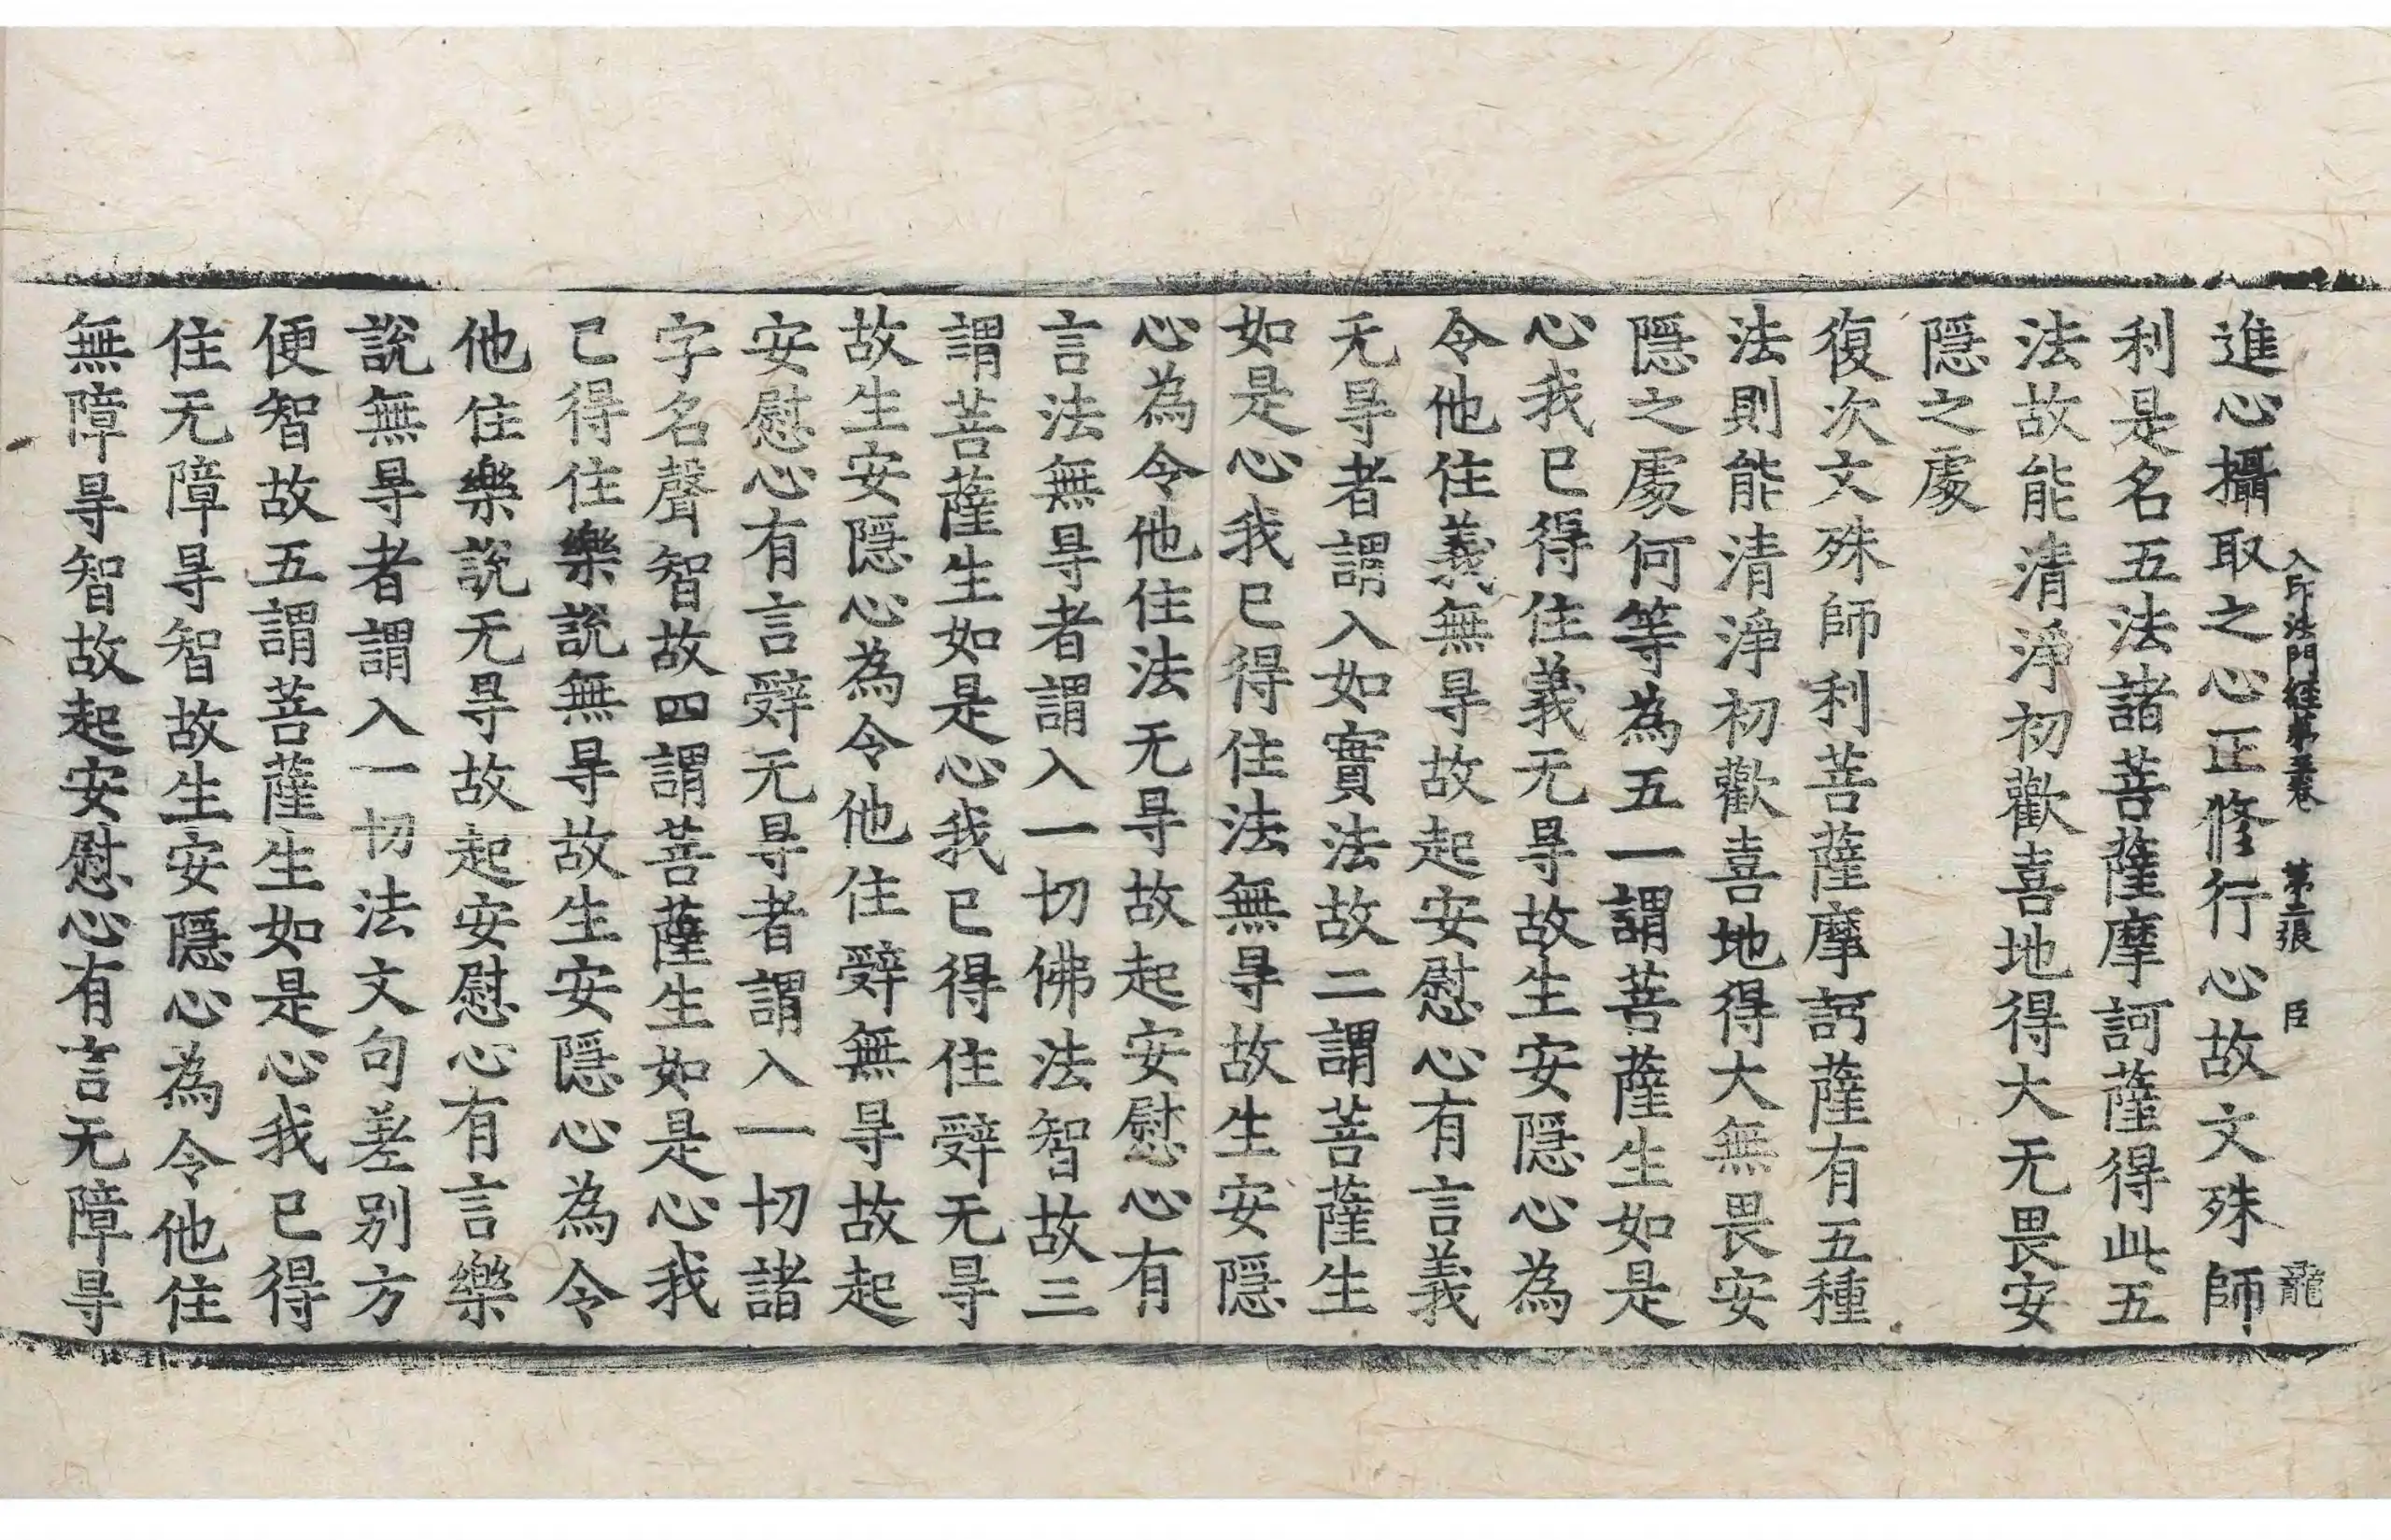 入印法門經第卷 第二張 臣 龍
進心攝取之心正修行心故文殊師
利是名五法諸菩薩摩訶薩得此五
法故能清淨初歡喜地得大无畏安
隱之處
復次文殊師利菩薩摩訶薩有五種
法則能清淨初歡喜地得大無畏安
隱之處何等為五一謂菩薩生如是
心我已得住義无㝵故生安隱心為
令他住義無㝵故起安慰心有言義
无㝵者謂入如實法故二謂菩薩生
如是心我已得住法無㝵故生安隱
心為令他住法无㝵故起安慰心有
言法無㝵者謂入一切佛法智故三
謂菩薩生如是心我已得住辤无㝵
故生安隱心為令他住辤無㝵故起
安慰心有言辤无㝵者謂入一切諸
字名聲智故四謂菩薩生如是心我
已得住樂說無㝵故生安隱心為令
他住樂說无㝵故起安慰心有言樂
說無㝵者謂入一切法文句差別方
便智故五謂菩薩生如是心我已得
住无障㝵智故生安隱心為令他住
無障㝵智故起安慰心有言无障㝵